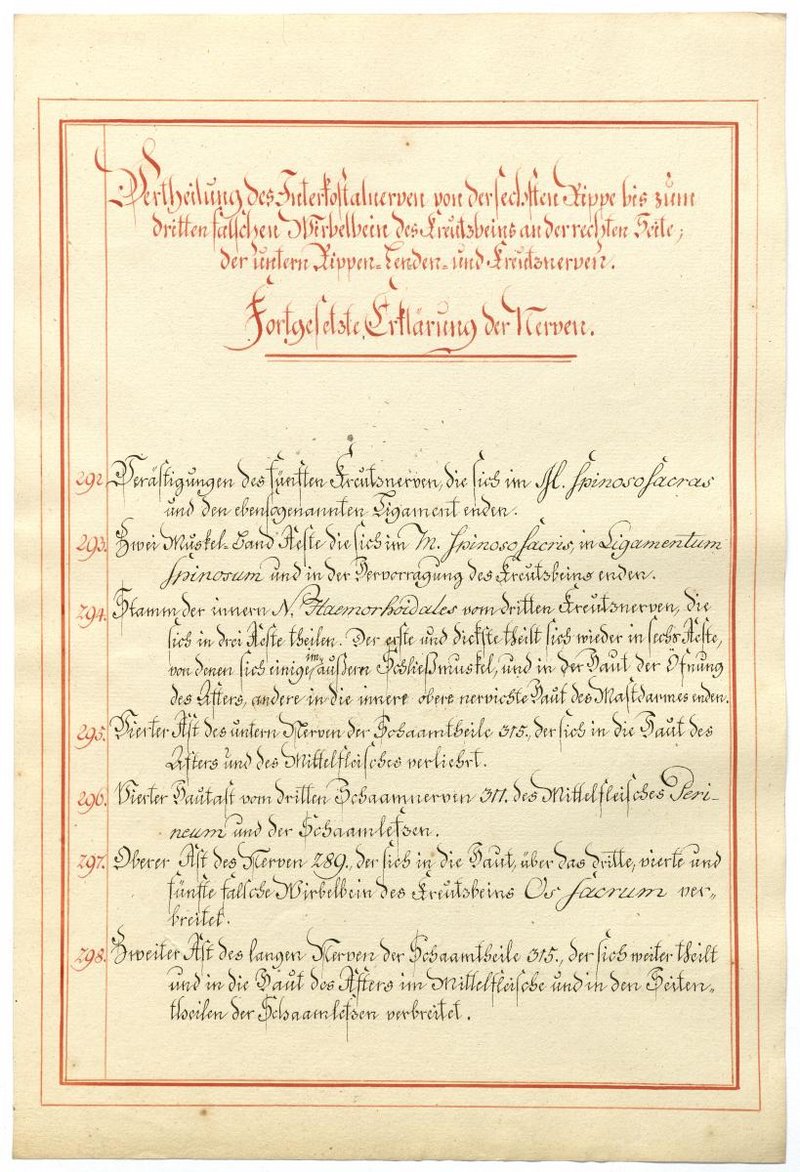 Vertheilung des Interkostalnerven von der sechsten Rippe bis zum
dritten falschen Wirbelbein des Kreutzbeins an der rechten Seite;
der untern Rippen- Lenden- und Kreutznerven.
Fortgesetzte Erklärung der Nerven.
292 Verästigungen des fünften Kreutznerven, die sich im M. Spinoso sacras
und den ebensogenannten Ligament enden.
293. Zwei Muskel-Band Aeste die sich im M. Spinoso sacris, in Ligamentum
Spinosum und in der Hervorragung des Kreutzbeins enden.
294. Stamm der innern N. Haemorhoidales vom dritten Kreutznerven, die
sich in drei Aeste theilen. Der erste und dickste theilt sich wieder in sechs Aeste,
von denen sich einige im äußern Schließmuskel, und in der Haut der Öfnung
des Afters, andere in die innere obere nervichte Haut des Mastdarmes enden.
295. Vierter Ast des untern Nerven der Schaamtheile 315., der sich in die Haut des
Afters und des Mittelfleisches verliehrt.
296. Vierter Hautast vom dritten Schaamnerven 311. des Mittelfleisches Peri-
neum und der Schaamletzen.
297. Oberer Ast des Nerven 289., der sich in die Haut, über das dritte, vierte und
fünfte falsche Wirbelbein des Kreutzbeins Os sacrum ver-
breitet.
298. Zweiter Ast des langen Nerven der Schaamtheile 315., der sich weiter theilt
und in die Haut des Afters im Mittelfleische und in den Seiten-
theilen der Schaamletzen verbreitet.